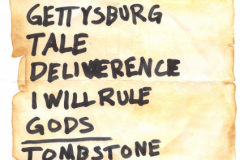 GETTYSBURG
TALE
DELIVERENCE
I WILL RULE
GODS
TOMBSTONE